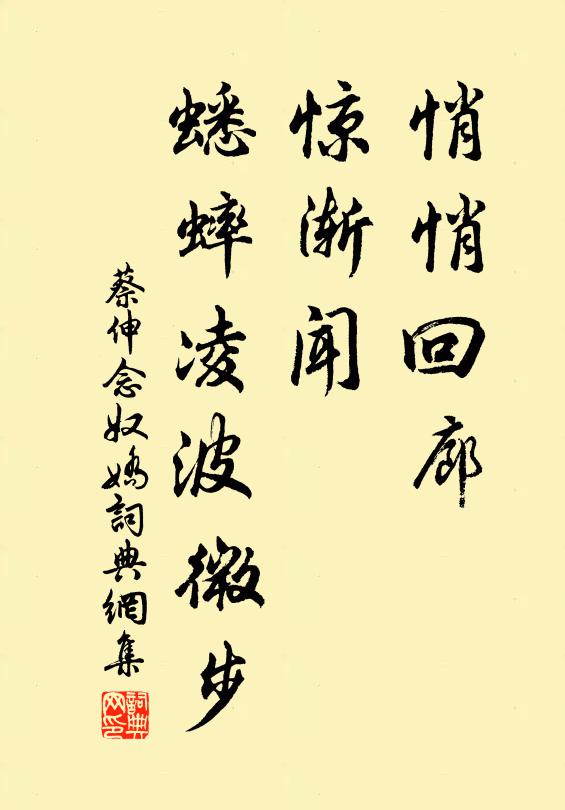 悄悄回廊
惊渐闻
蟋蟀凌波微步
蔡伸念奴娇詞典網集
詞典網印